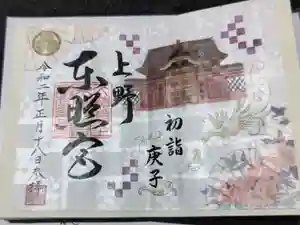 初詣
庚子
上野
東照宮
令和二年正月十八日参拝